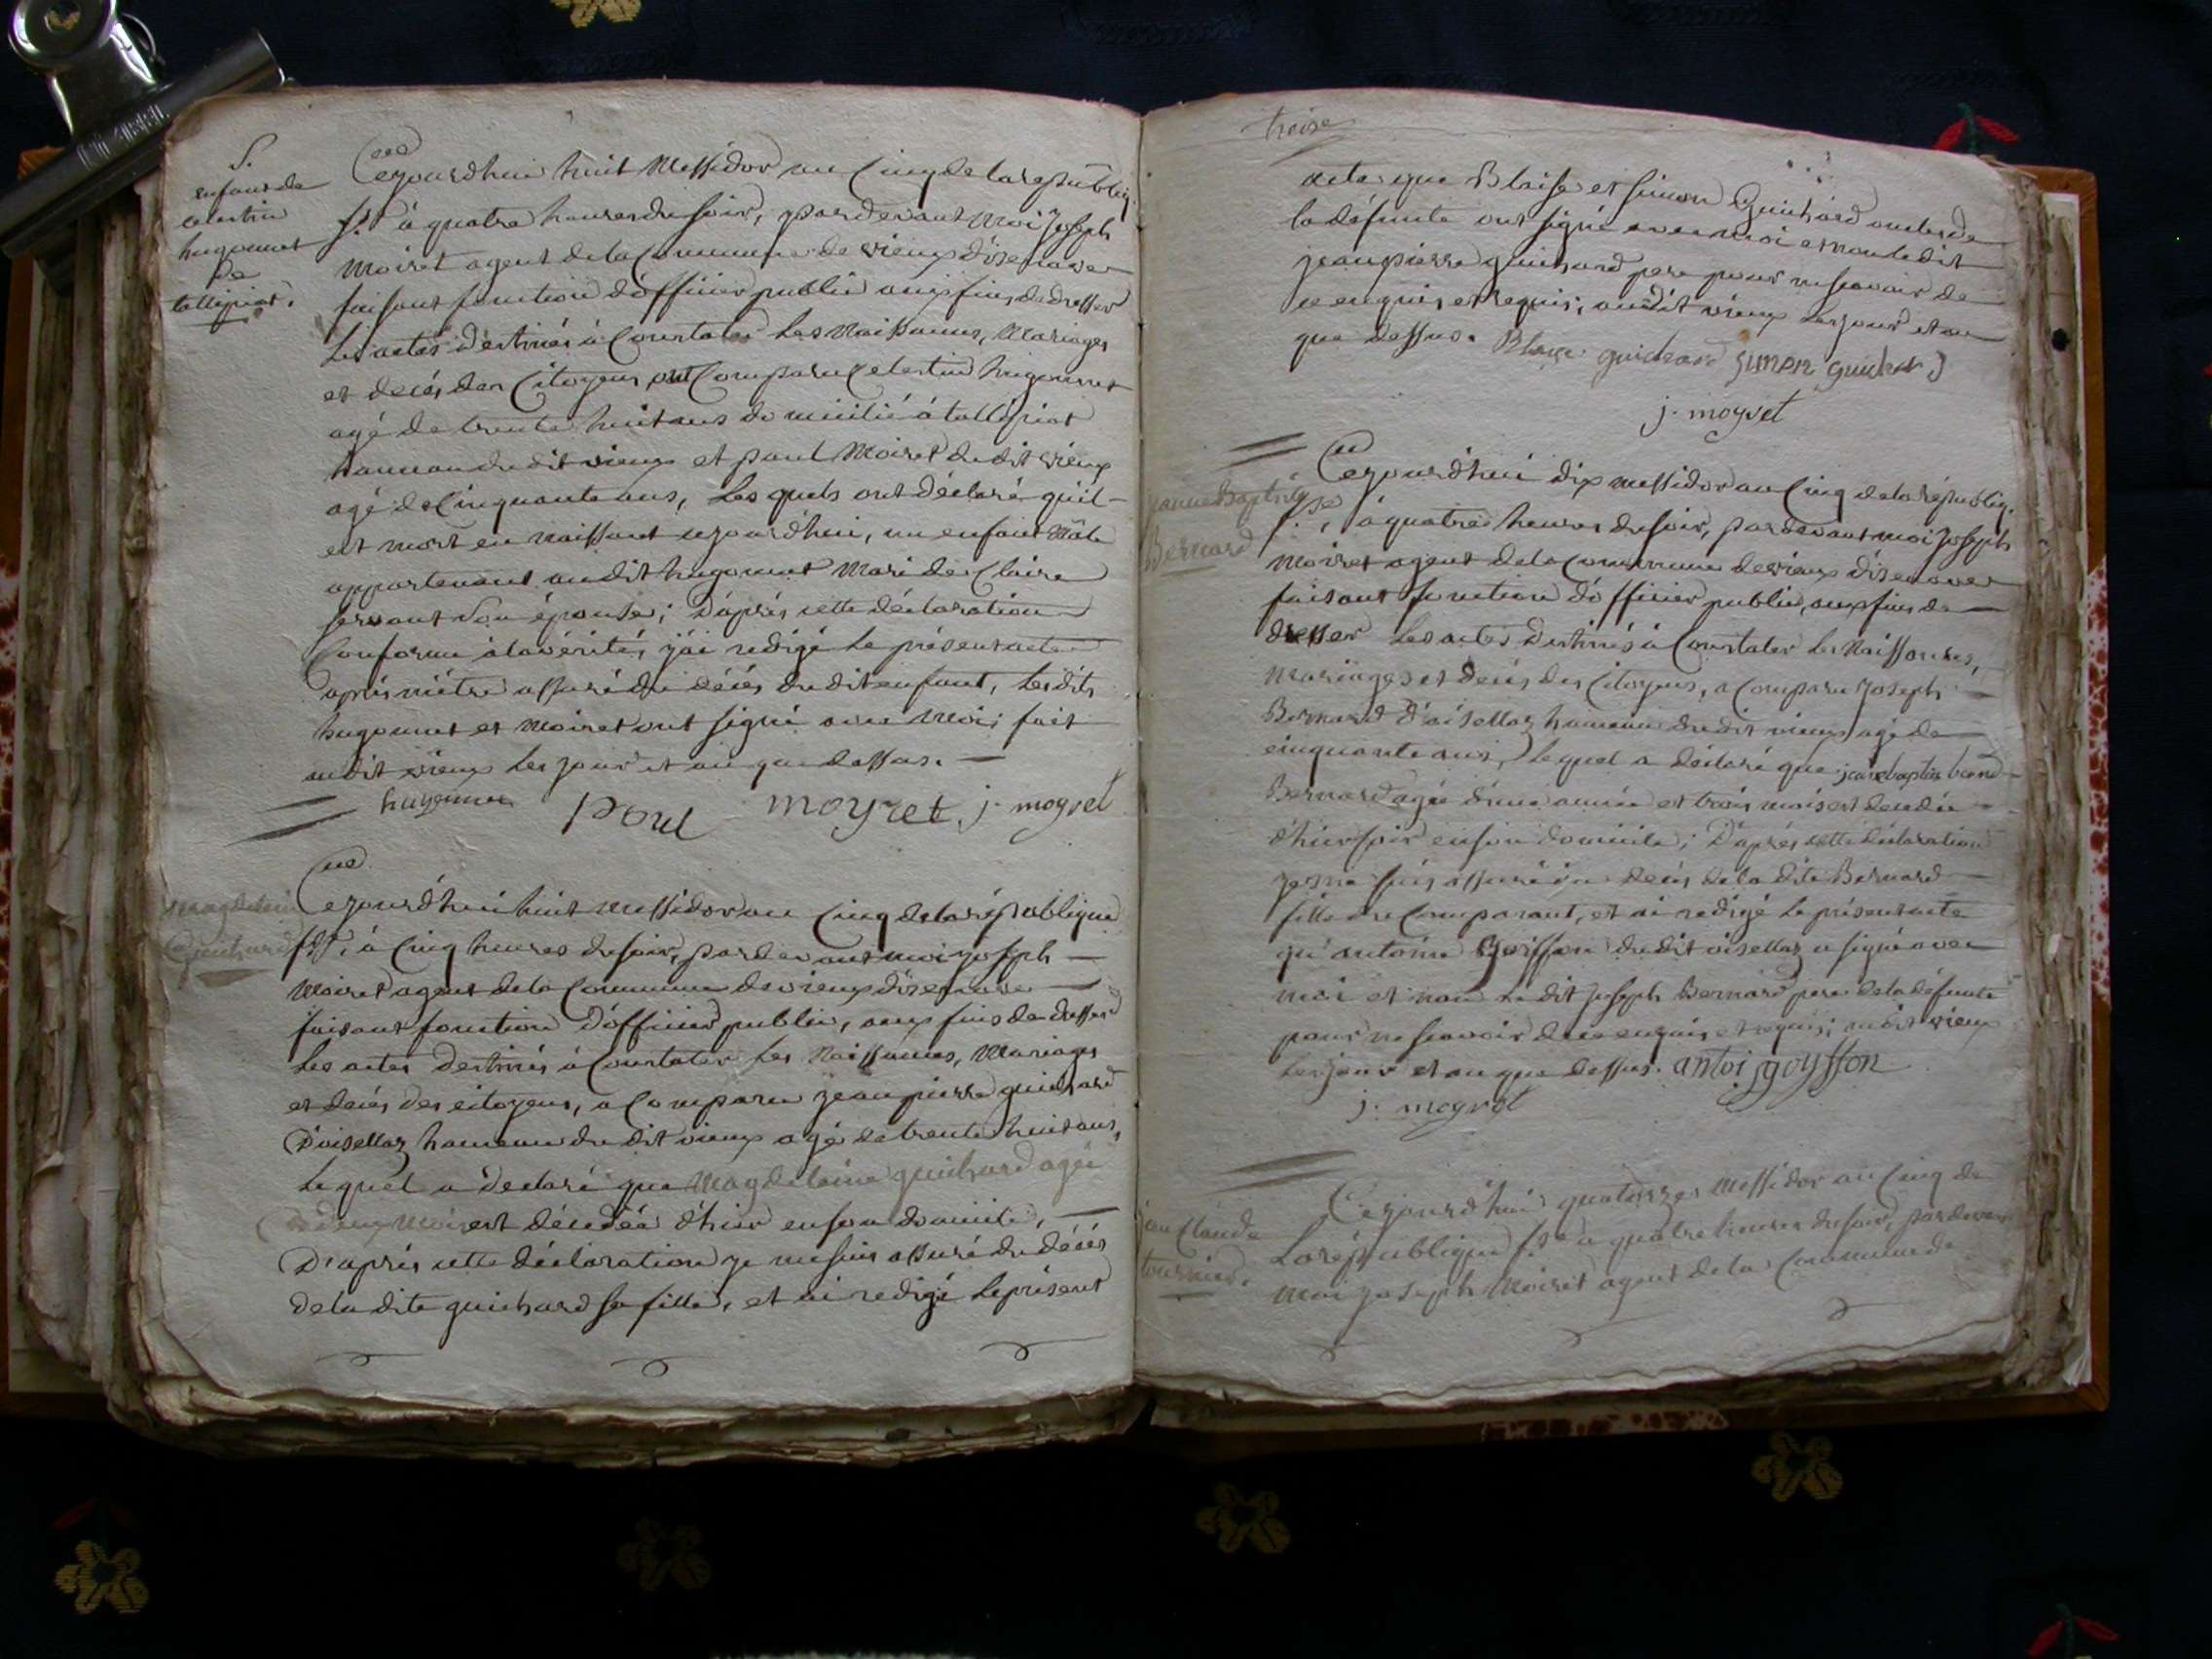 S.
enfant de
celestin
hugonnet
de
tallipiat.
Cejourdhui huit Messidor an Cinq de la republiq.
fse à quatre heures du soir, pardevant Moi Joseph
Moiret agent de la Commune de vieux d'izenave
faisant fonction d'officier public aux fins de dresser
les actes destinés à Constater les Naissances, Mariages
et decés des Citoyens ont Comparu Celestin hugonnet
agé de trente huit ans domicilié à tallipiat
hameau du dit vieux et paul Moiret du dit vieux
agé de Cinquante ans, les quels ont déclaré qu'il
est mort en naissant cejourd'hui, un enfant Mâle
appartenant au dit hugonnet Mari de Claire
servant son épouse; D'après cette déclaration
Conforme à la vérité, j'ai redigé le présent acte
après m'être assuré du décés du dit enfant, les dits
hugonnet et Moiret ont signé avec Moi; fait
audit vieux les jour et an que dessus.
hugonnet Poul moyret j. moyret
magdelaine
Guichard
Cejourd'hui huit Messidor an Cinq de la république
fse, à Cinq heures du soir, pardevant moi joseph
Moiret agent de la Commune de vieux d'izenave
faisant fonction d'officier public, aux fins de dresser
les actes destinés à Constater les Naissances, Mariages
et decés des citoyens, a Comparu jean pierre guichard
D'oisellaz hameau du dit vieux agé de trente huit ans,
le quel a déclaré que Magdelaine guichard agée
de deux Mois est décedée d'hier en son domicile,
D'après cette déclaration je me suis assuré du décés
de la dite guichard sa fille, et ai redigé le présent
treize
acte que Blaise et simon Guichard oncles de
la défunte ont signé avec moi et non le dit
jean pierre guichard pere pour ne scavoir de
ce enquis et requis; audit vieux les jour et an
que dessus. Blaise guichard simon guichard
j. moyret
jeanne Baptiste
Bernard
Cejourd'hui dix messidor an Cinq de la républiq.
fse, à quatre heures du soir, pardevant moi Joseph
Moiret agent de la Commune de vieux d'izenave
faisant fonction d'officier public, aux fins de
dresser les actes destinés à Constater les Naissances,
Mariages et decés des Citoyens, a Comparu Joseph
Bernard d'oisellaz hameau du dit vieux agé de
cinquante ans, lequel a déclaré que jeane baptiste
Bernard agée d'une année et trois mois est decedée
d'hier soir en son domicile; D'après cette déclaration
je me suis assuré du decés de la dite Bernard
fille du Comparant, et ai redigé le présent acte
qu'antoine Goiffon du dit oisellaz a signé avec
moi et non le dit joseph Bernard pere de la défunte
pour ne scavoir de ce enquis et requis; audit vieux
les jour et an que dessus. antoi goyffon
j. moyret
jean Claude
tournier.
Cejourd'hui quatorze Messidor an Cinq de
La république fse à quatre heures du soir, pardevant
moi joseph Moiret agent de la Commune de